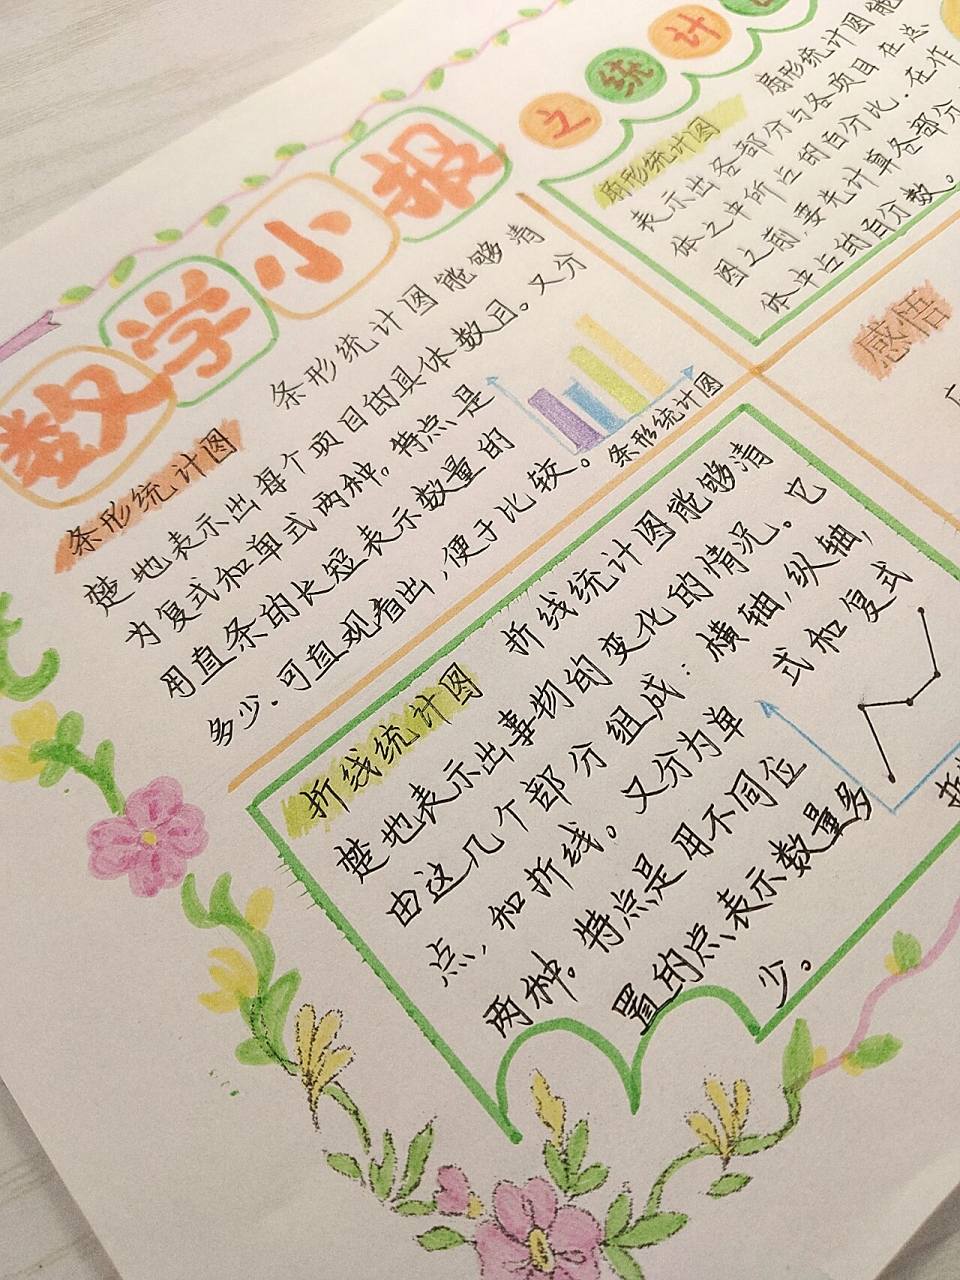 数学小报
之统计
条形统计图
条形统计图能够清
楚地表示出每个项目的具体数目。又分
为复式和单式两种。特点是
用直条的长短表示数量的
多少.可直观看出,便于比较。
条形统计图
扇形统计图
扇形统计图能
表示出各部分与各项目在总
体之中所占的百分比.在作
图之前,要先计算各部分
体中占的百分数。
感悟
折线统计图
折线统计图能够清
楚地表示出事物的变化的情况。它
由这几个部分组成:横轴,纵轴,
点,和折线。又分为单式和复式
两种。特点是用不同位
置的点表示数量多
少。